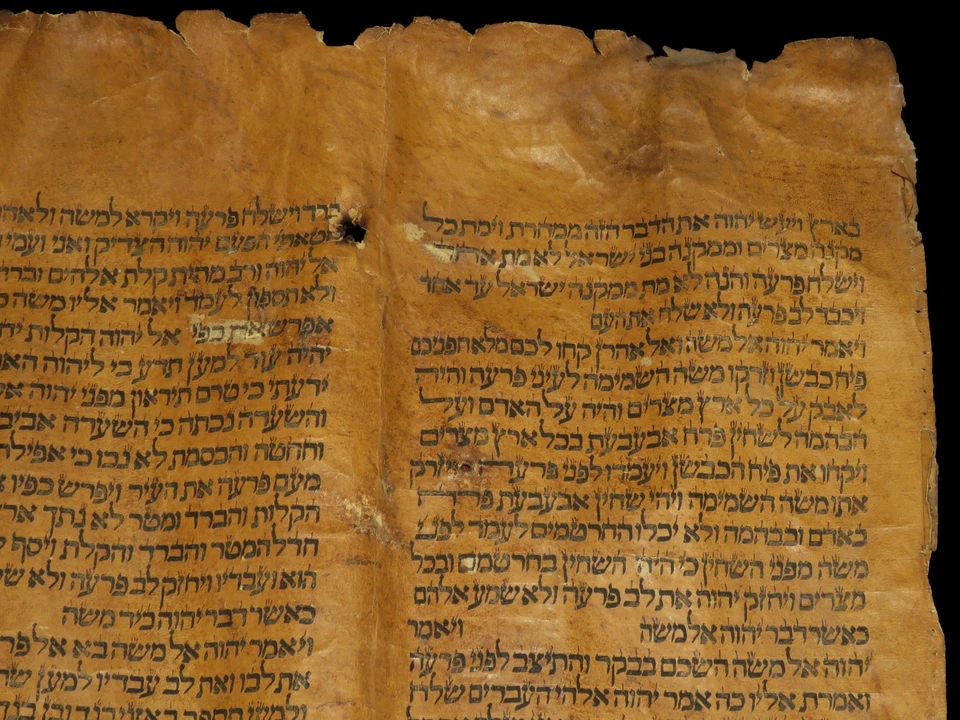 בארץ ויעש יהוה את הדבר הזה ממחרת וימת כל
מקנה מצרים וממקנה בני ישראל לא מת אחד
וישלח פרעה והנה לא מת ממקנה ישראל עד אחד
ויכבד לב פרעה ולא שלח את העם
ויאמר יהוה אל משה ואל אהרן קחו לכם מלא חפניכם
פיח כבשן וזרקו משה השמימה לעיני פרעה והיה
לאבק על כל ארץ מצרים והיה על האדם ועל
הבהמה לשחין פרח אבעבעת בכל ארץ מצרים
ויקחו את פיח הכבשן ויעמדו לפני פרעה ויזרק
אתו משה השמימה ויהי שחין אבעבעת פרח
באדם ובבהמה ולא יכלו החרטמים לעמד לפני
משה מפני השחין כי היה השחין בחרטמם ובכל
מצרים ויחזק יהוה את לב פרעה ולא שמע אלהם
כאשר דבר יהוה אל משה ויאמר
יהוה אל משה השכם בבקר והתיצב לפני פרעה
ואמרת אליו כה אמר יהוה אלהי העברים שלח
ברד וישלח פרעה ויקרא למשה ולאהר
חטאתי הפעם יהוה הצדיק ואני ועמי
אל יהוה ורב מהית קלת אלהים וברד
ולא תספון לעמד ויאמר אליו משה
אפרש את כפי אל יהוה הקלות
יהיה עוד למען תדע כי ליהוה הא
ידעתי כי טרם תיראון מפני יהוה
והשערה נכתה כי השערה אביב
והחטה והכסמת לא נכו כי אפילת
מעם פרעה את העיר ויפרש כפיו
הקלות והברד ומטר לא נתך
חדל המטר והברד והקלת ויסף
הוא ועבדיו ויחזק לב פרעה ולא
כאשר דבר יהוה ביד משה
ויאמר יהוה אל משה בא אל פר
את לבו ואת לב עבדיו למען
ולמען תספר באזני בנך ובן